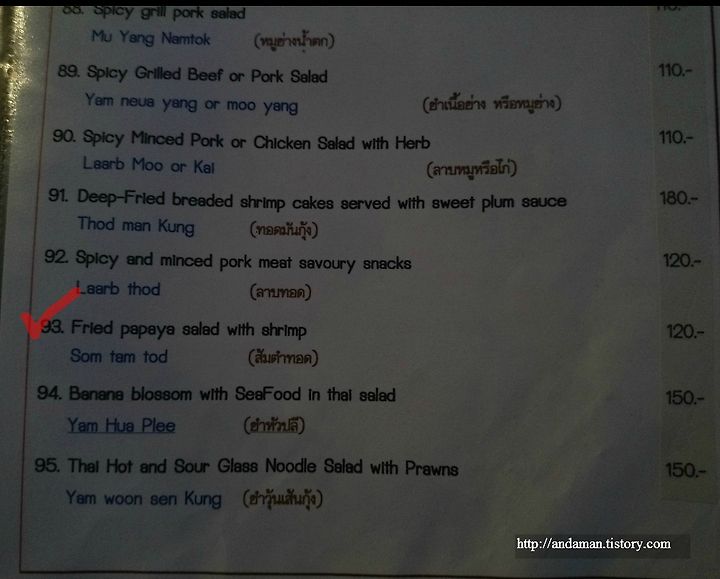 88. Spicy grill pork salad 110.-
Mu Yang Namtok (หมูย่างน้ำตก)
89. Spicy Grilled Beef or Pork Salad 110.-
Yam neua yang or moo yang (ยำเนื้อย่าง หรือหมูย่าง)
90. Spicy Minced Pork or Chicken Salad with Herb 110.-
Laarb Moo or Kai (ลาบหมูหรือไก่)
91. Deep-Fried breaded shrimp cakes served with sweet plum sauce 180.-
Thod man Kung (ทอดมันกุ้ง)
92. Spicy and minced pork meat savoury snacks 120.-
Laarb thod (ลาบทอด)
93. Fried papaya salad with shrimp 120.-
Som tam tod (ส้มตำทอด)
94. Banana blossom with SeaFood in thai salad 150.-
Yam Hua Plee (ยำหัวปลี)
95. Thai Hot and Sour Glass Noodle Salad with Prawns 150.-
Yam woon sen Kung (ยำวุ้นเส้นกุ้ง)
http://andaman.tistory.com